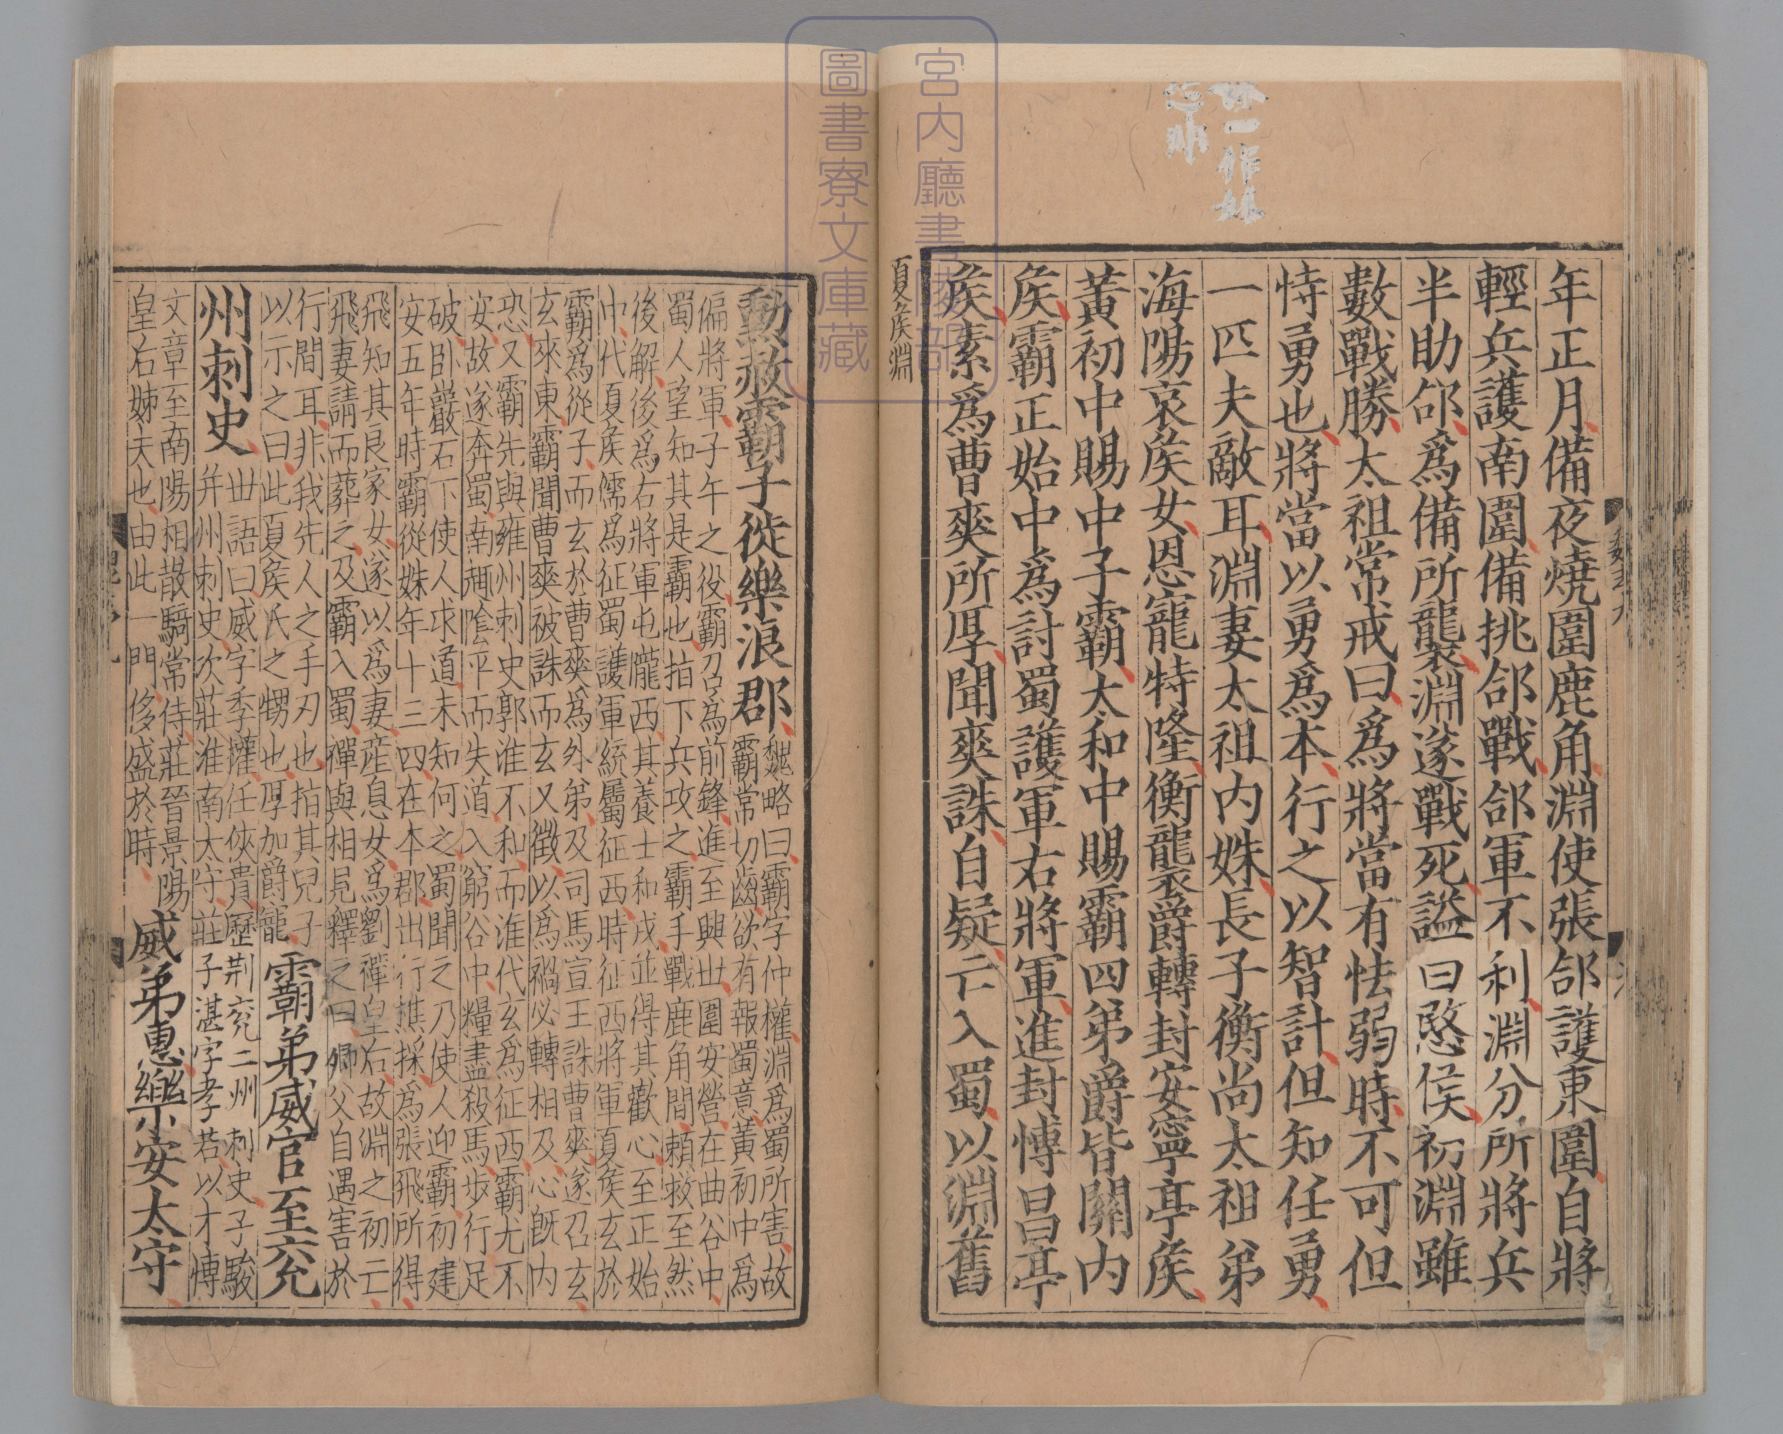 年正月備夜燒圍鹿角淵使張郃護東圍自將
輕兵護南圍備挑郃戰郃軍不利淵分所將兵
半助郃爲備所襲淵遂戰死諡曰愍侯初淵雖
數戰勝太祖常戒曰爲將當有怯弱時不可但
恃勇也將當以勇爲本行之以智計但知任勇
一匹夫敵耳淵妻太祖内姝長子衡尚太祖弟
海陽哀矦女恩寵特隆衡襲爵轉封安寧亭矦
黃初中賜中子霸太和中賜霸四弟爵皆關内
矦霸正始中爲討蜀護軍右將軍進封博昌亭
矦素爲曹爽所厚聞爽誅自疑亡入蜀以淵舊
夏矦淵
勳赦霸子徙樂浪郡
魏略曰霸字仲權淵爲蜀所害故
霸常切齒欲有報蜀意黃初中爲
偏將軍子午之役霸召爲前鋒進至興世圍安營在曲谷中
蜀人望知其是霸也指下兵攻之霸手戰鹿角間賴救至然
後解後爲右將軍屯隴西其養士和戎並得其歡心至正始
中代夏矦儒爲征蜀護軍統屬征西時征西將軍夏矦玄於
霸爲從子而玄於曹爽爲外弟及司馬宣王誅曹爽遂召玄
玄來東霸聞曹爽被誅而玄又徵以爲禍必轉相及心旣内
恐又霸先與雍州刺史郭淮不和而淮代玄爲征西霸尤不
安故遂奔蜀南趣陰平而失道入窮谷中糧盡殺馬步行足
破卧巖石下使人求道未知何之蜀聞之乃使人迎霸初建
安五年時霸從姝年十三四在本郡出行樵採爲張飛所得
飛知其良家女遂以爲妻產息女爲劉禪皇后故淵之初亡
飛妻請而葬之及霸入蜀禪與相見釋之曰卿父自遇害於
行間耳非我先人之手刃也指其兒子
以示之曰此夏矦氏之甥也厚加爵寵
霸弟威官至兖
州刺史
世語曰威字季權任俠貴歷荆兖二州刺史子駿
并州刺史次莊淮南太守莊子湛字孝若以才博
文章至南陽相散騎常侍莊晉景陽
皇后姊夫也由此一門侈盛於時
威弟惠樂安太守
宮内廳書陵部
圖書寮文庫藏